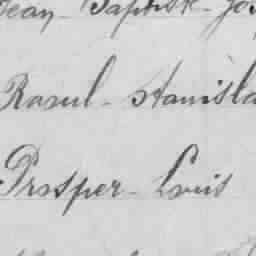 Jean-Baptiste-Jos
Raoul-Stanisla
Prosper-Louis